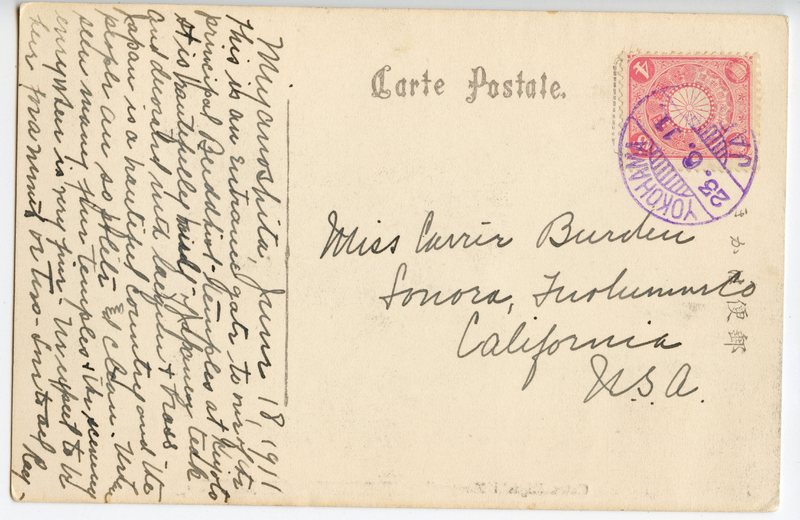 Carte Postale.
4
YOKOHAMA
25. 6. 11
JAPAN
きかは便郵
Miss Carrie Burden
Sonora, Tuolumne Co
California
U.S.A.
Myanoshita, June 18 1911
This is an entrance gate to one of the
principal Buddhist temples at Kyoto
It is beautifully made of
and decorated with lacquer & brass
Japan is a beautiful country and the
people are so polite & clean. We've
seen many fine temples & the scenery
everywhere is very fine. We expect to be
here for a week or two